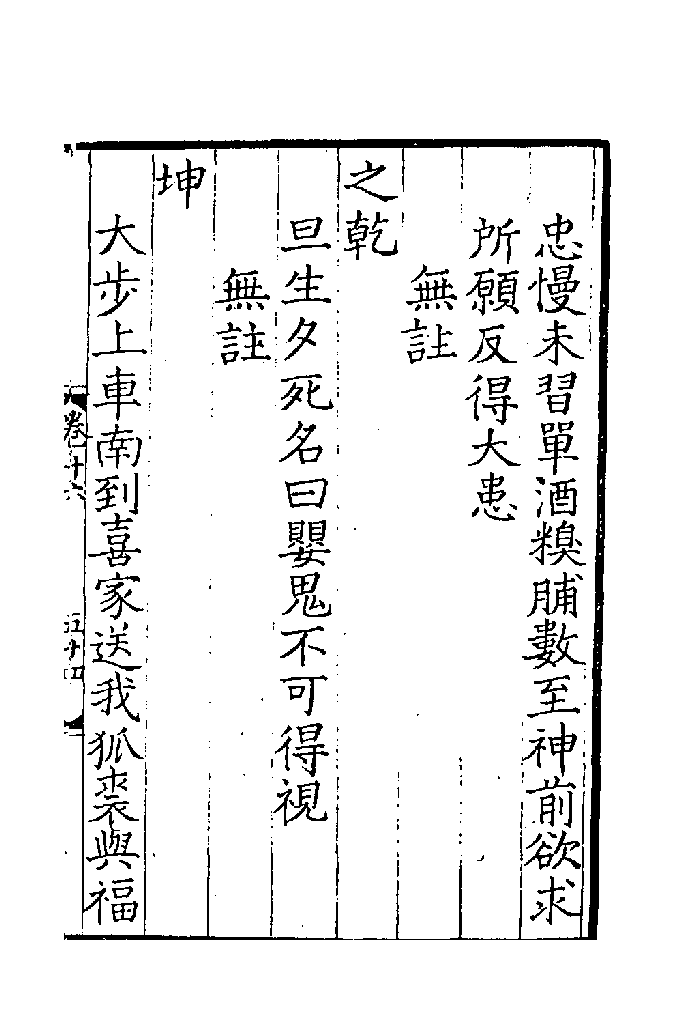 忠慢未習單酒糗脯數至神前欲求
所願反得大患
無註
之乾
旦生夕死名曰嬰鬼不可得視
無註
坤
大步上車南到喜家送我狐裘與福
卷十六
五十四